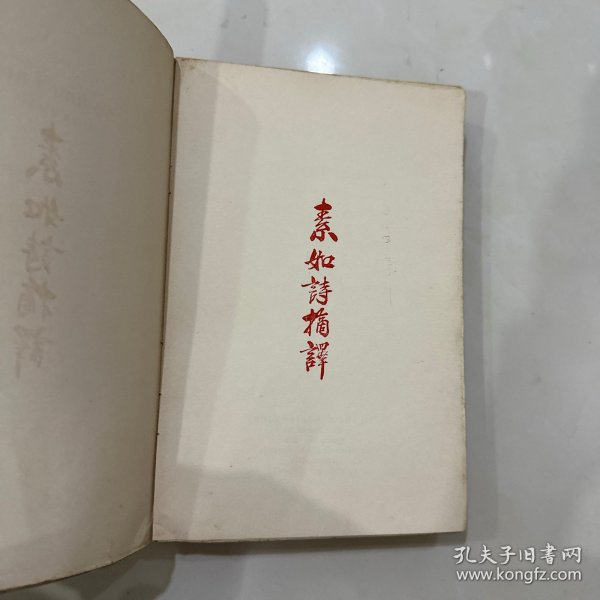 素如詩摘譯
孔夫子旧书网
www.kongfz.com